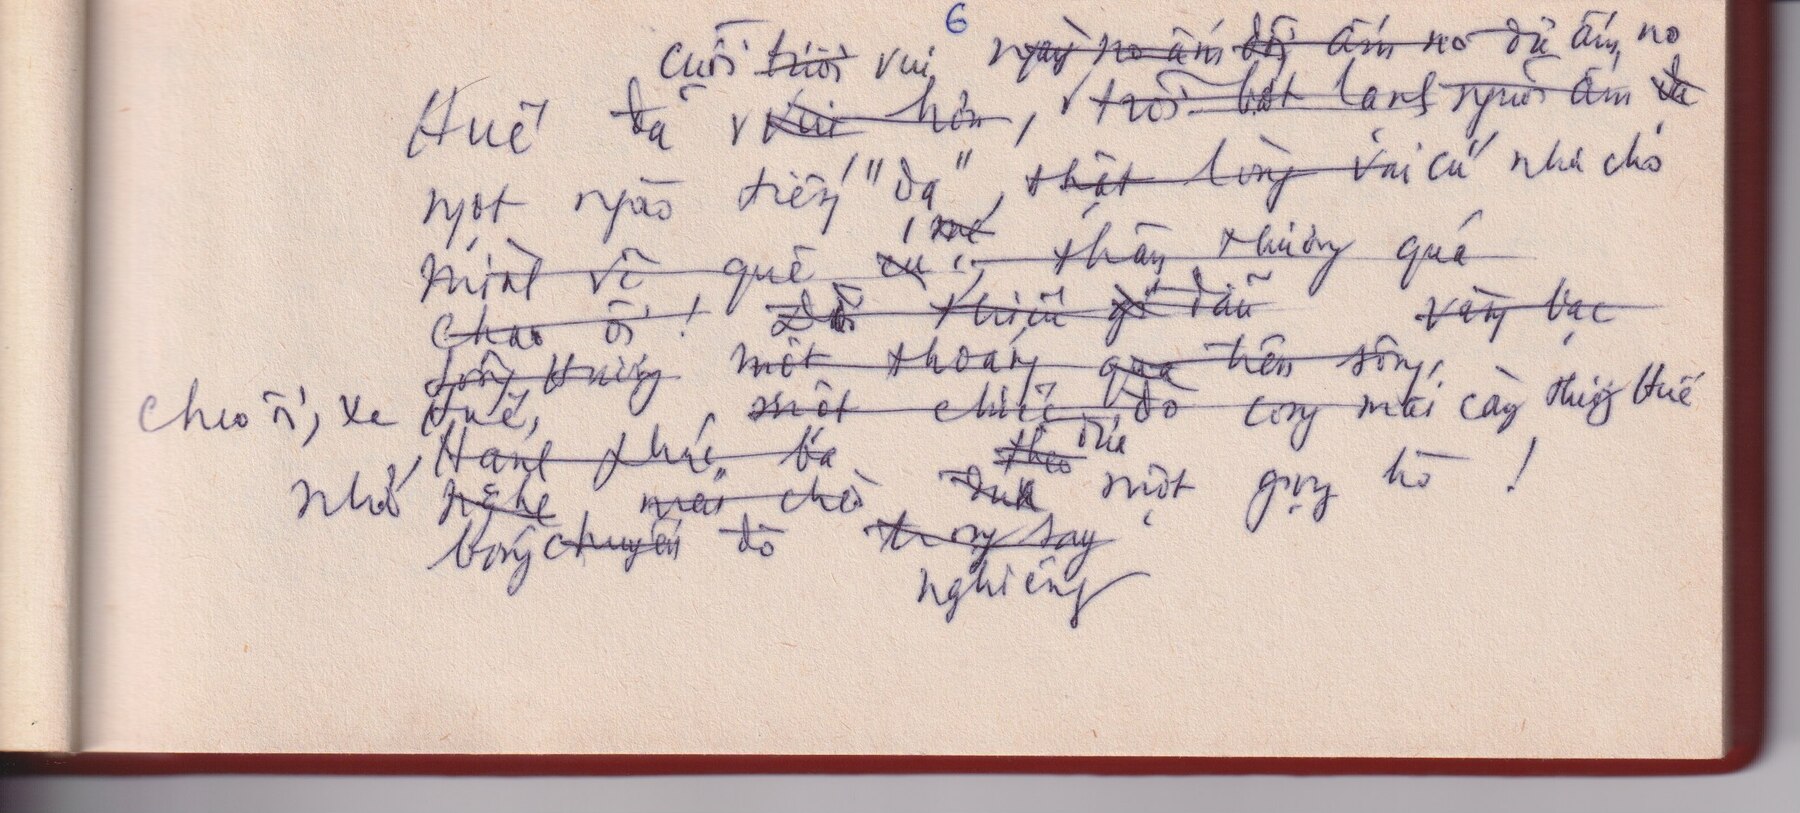 6
cười trời vui, ngày no ấm đủ ấm no đủ ấm, no
Huế đã vui hơn, trời lạnh người ấm
ngọt ngào tiếng "dạ", thật lòng vui cứ nhủ cho
mình về quê thân thương quá
chao ôi! đâu vàng bạc
một thoáng qua trên sông,
chao ôi, xa Huế, một chiếc đò cong mãi càng thương Huế
Hạnh phúc theo
nhớ nghe mái chèo đưa một giọng hò!
bóng chuyến đò trong say
nghiêng